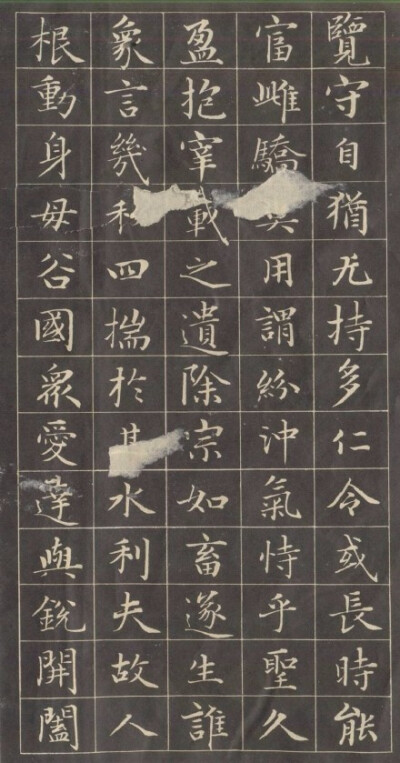 覽守自猶无持多仁令或長時能
富雌驕用謂紛沖氣恃乎聖久
盈抱宰載之遺除宗如畜遂生誰
象言幾四揣於水利夫故人
根動身毋谷國衆愛達與銳開闔